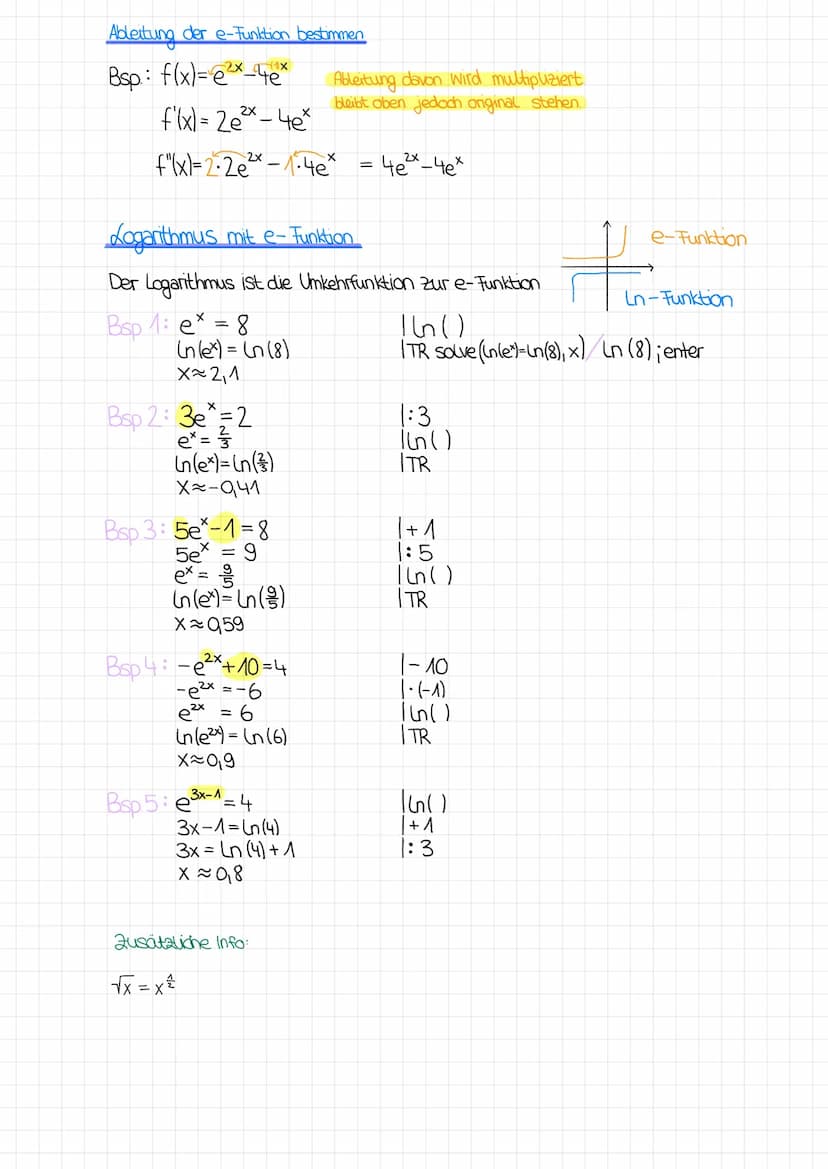 Ableitung der e-Funktion bestimmen
Bsp.: f(x)= e^2x - 4e^1x
Ableitung davon wird multipliziert
bleibt oben jedoch original stehen.
f'(x) = 2e^2x - 4e^x
f''(x)= 2·2e^2x - 1·4e^x = 4e^2x - 4e^x
Logarithmus mit e-Funktion
e-Funktion
Der Logarithmus ist die Umkehrfunktion zur e-Funktion
Ln-Funktion
Bsp 1: e^x = 8 | ln( )
ln(e^x) = ln(8) | TR solve(ln(e^x)=ln(8), x) / ln(8) ; enter
x ≈ 2,1
Bsp 2: 3e^x = 2 | :3
e^x = 2/3 | ln( )
ln(e^x) = ln(2/3) | TR
x ≈ -0,41
Bsp 3: 5e^x - 1 = 8 | + 1
5e^x = 9 | : 5
e^x = 9/5 | ln( )
ln(e^x) = ln(9/5) | TR
x ≈ 0,59
Bsp 4: -e^2x + 10 = 4 | - 10
-e^2x = -6 | · (-1)
e^2x = 6 | ln( )
ln(e^2x) = ln(6) | TR
x ≈ 0,9
Bsp 5: e^3x-1 = 4 | ln( )
3x - 1 = ln(4) | + 1
3x = ln(4) + 1 | : 3
x ≈ 0,8
Zusätzliche Info:
√x = x^1/2